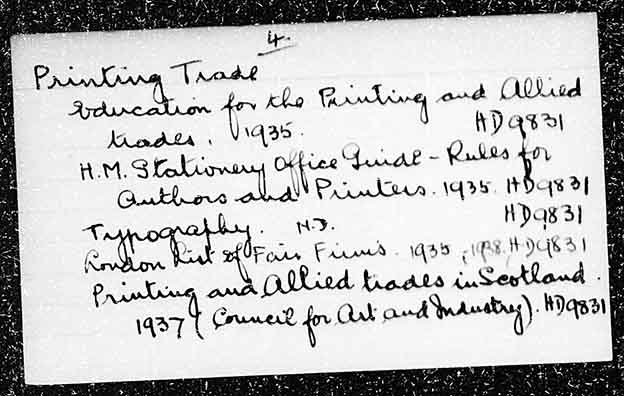 4.
Printing Trade
Education for the Printing and Allied
trades. 1935. HD9831
H.M. Stationery Office Guide - Rules for
Authors and Printers. 1935. HD9831
Typography. N.D. HD9831
London List of Fair Firms. 1935, 1938, HD9831
Printing and Allied trades in Scotland.
1937 (Council for Art and Industry). HD9831